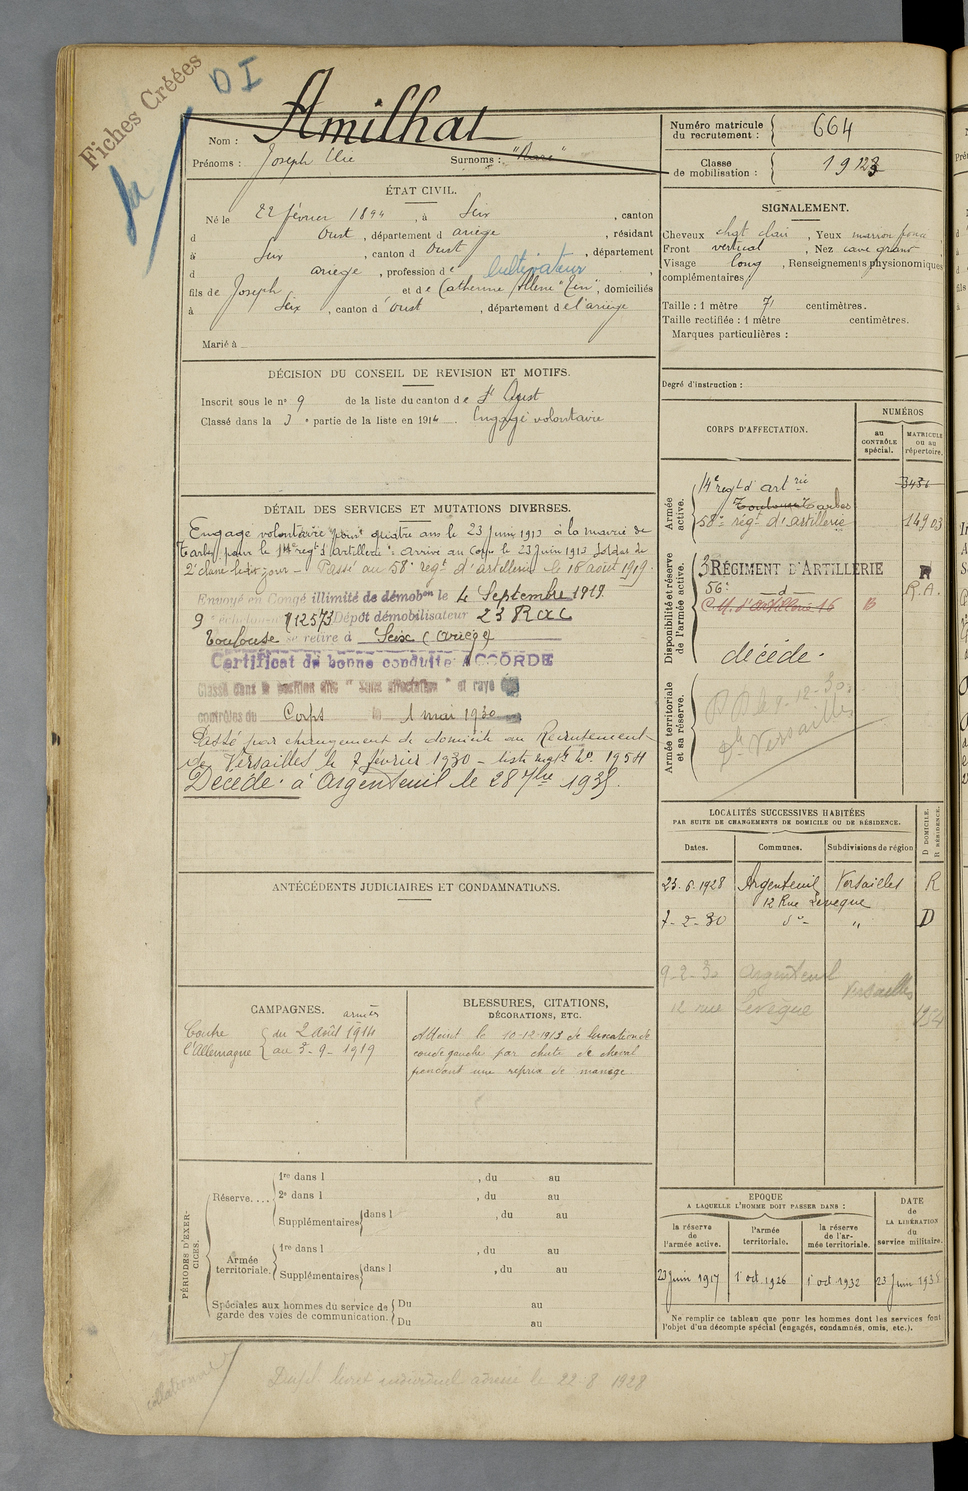 Fiches Créées
DI
Nom : Amilhat
Prénoms : Joseph Elie Surnoms :
ÉTAT CIVIL.
Né le 22 février 1894, à Seix, canton
d Oust, département d ariège, résidant
à Seix, canton d Oust, département
d ariège, profession de Cultivateur,
fils de Joseph et de Catherine, domiciliés
à Seix, canton d'oust, département de l'ariège
Marié à
DÉCISION DU CONSEIL DE REVISION ET MOTIFS.
Inscrit sous le n° 9 de la liste du canton de
Classé dans la 3e partie de la liste en 1914. Engagé volontaire
DÉTAIL DES SERVICES ET MUTATIONS DIVERSES.
Engagé volontaire pour quatre ans le 23 Juin 1913 à la mairie de
Tarbes pour le 14e regt d'artillerie. arrivé au corps le 23 Juin 1913 Soldat de
2e classe le dit jour – Passé au 58e regt d'artillerie le 18 août 1919.
Envoyé en Congé illimité de démobon le 4 Septembre 1919
9e échelon n° 12573 Dépôt démobilisateur 23 RAC
Toulouse se retire à Seix (ariège)
Certificat de bonne conduite ACCORDÉ
Classé dans la position dite " Sans affectation " et rayé des
contrôles du Corps le 1 mai 1930
Passé par changement de domicile au Recrutement
de Versailles le 7 février 1930 – liste n° 1954
Décédé à Argenteuil le 28 7bre 1935.
ANTÉCÉDENTS JUDICIAIRES ET CONDAMNATIONS.
CAMPAGNES.
armées
Contre l'Allemagne { du 2 août 1914
au 3-9-1919
BLESSURES, CITATIONS,
DÉCORATIONS, ETC.
Atteint le 10-12-1913 de luxation de
coude gauche par chute de cheval
pendant une reprise de manège.
PÉRIODES D'EXERCICES.
Réserve.... 1re dans l , du au
2e dans l , du au
Supplémentaires dans l , du au
Armée territoriale. 1re dans l , du au
Supplémentaires dans l , du au
Spéciales aux hommes du service de garde des voies de communication. Du au
Du au
Numéro matricule du recrutement : 664
Classe de mobilisation : 1913
SIGNALEMENT.
Cheveux chat clair, Yeux marron foncé,
Front vertical, Nez cave grand
Visage long, Renseignements physionomiques
complémentaires
Taille : 1 mètre 71 centimètres.
Taille rectifiée : 1 mètre centimètres.
Marques particulières :
Degré d'instruction :
CORPS D'AFFECTATION.
NUMÉROS
au CONTRÔLE spécial.
MATRICULE ou au répertoire.
Armée active.
14e regt d'artrie 3431
Toulouse Tarbes
58e régt d'artillerie 14903
Disponibilité et réserve de l'armée active.
3 RÉGIMENT D'ARTILLERIE R
56e — d — R.A.
C.M. d'Artillerie 16
décédé.
Armée territoriale et sa réserve.
Versailles
LOCALITÉS SUCCESSIVES HABITÉES
PAR SUITE DE CHANGEMENTS DE DOMICILE OU DE RÉSIDENCE.
Dates. Communes. Subdivisions de région
D DOMICILE. R RÉSIDENCE.
23-6-1928 Argenteuil Versailles R
12 Rue Leveque
7-2-30 do – " D
9-2-30 Argenteuil Versailles
12 rue Levêque 1954
EPOQUE
A LAQUELLE L'HOMME DOIT PASSER DANS :
la réserve de l'armée active.
l'armée territoriale.
la réserve de l'armée territoriale.
DATE de LA LIBÉRATION du service militaire.
23 Juin 1917 1er oct 1926 1er oct 1932 23 Juin 1938
Ne remplir ce tableau que pour les hommes dont les services font
l'objet d'un décompte spécial (engagés, condamnés, omis, etc.).
collationné
livret individuel le 22-8 1928